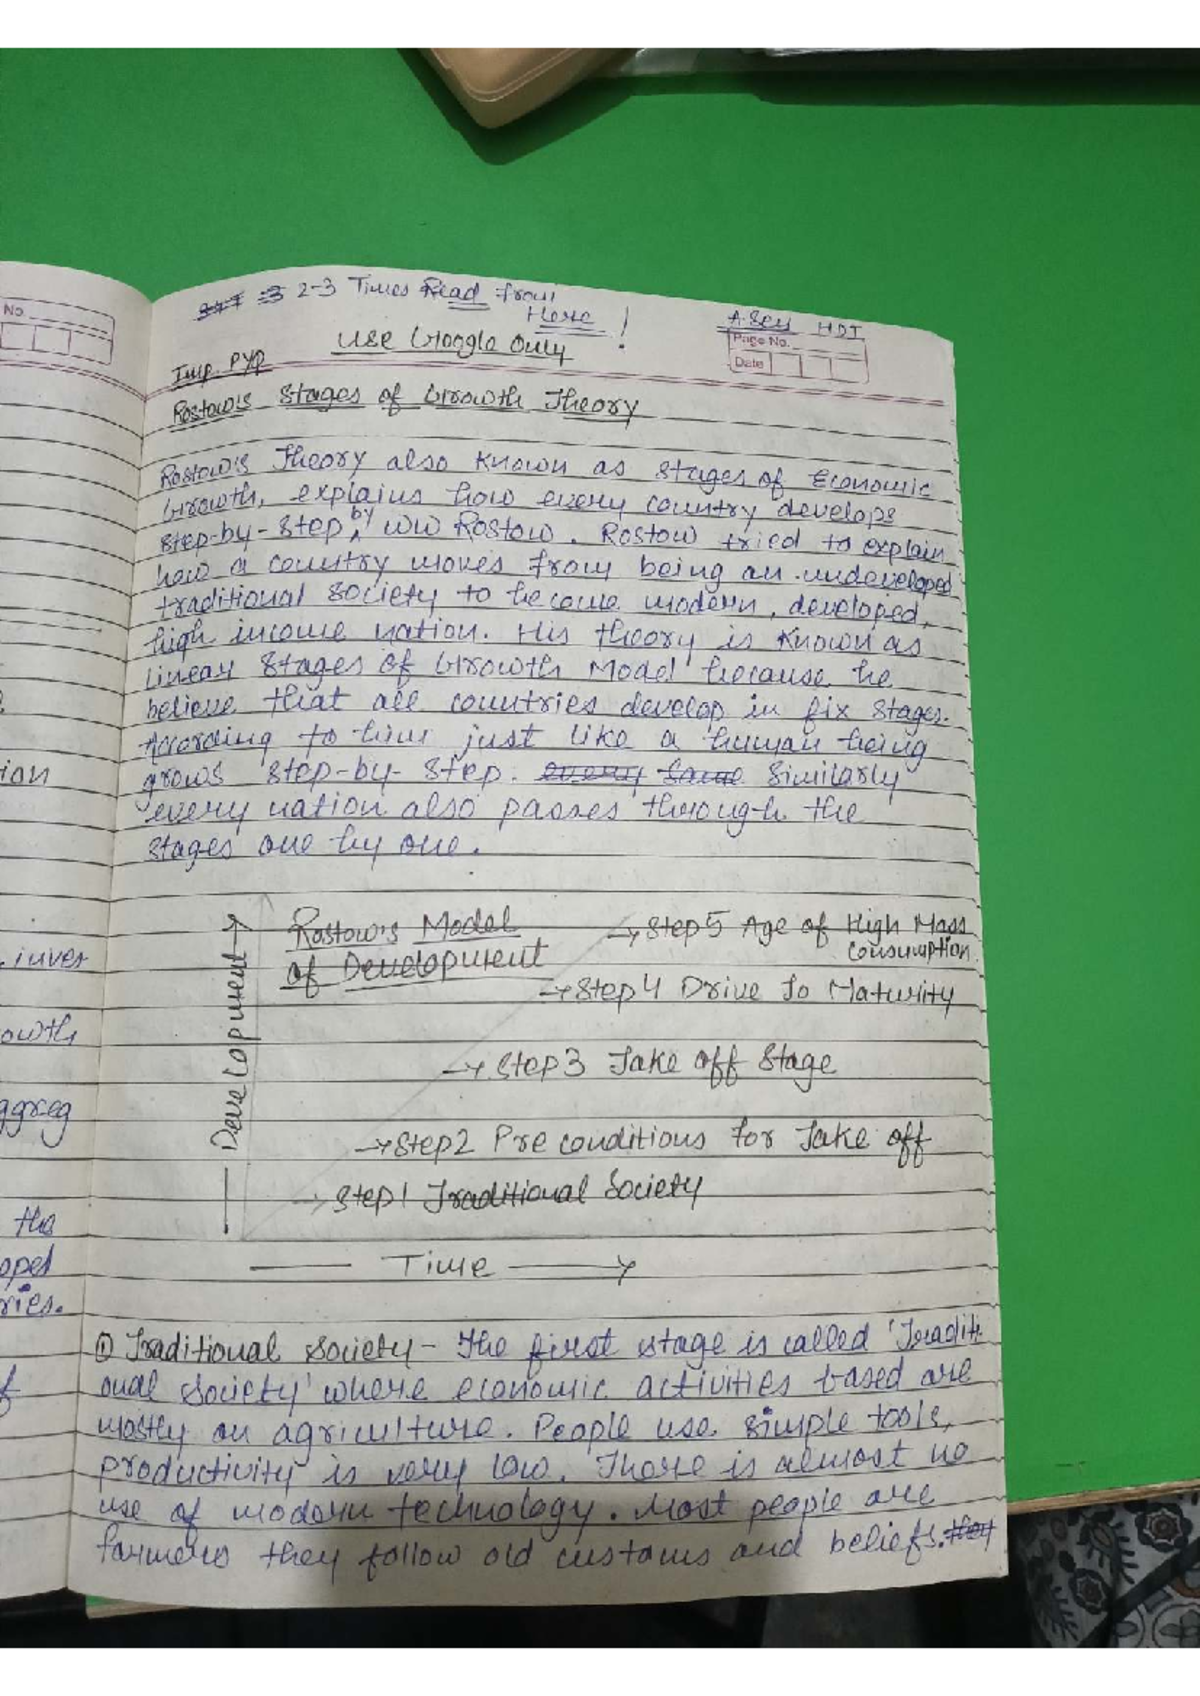 2-3 Times Read from
Here!
A.Sey HDT
Use Google Only
Page No.
Date
Imp. PYQ
Rostow's Stages of Growth Theory
Rostow's Theory also known as stages of Economic
Growth, explains how every country develops
step-by-step, by WW Rostow. Rostow tried to explain
how a country moves from being an undeveloped
traditional society to become modern, developed,
high income nation. His theory is known as
linear stages of Growth Model because he
believe that all countries develop in fix stages.
According to him just like a human being
grows step-by-step. every same Similarly
every nation also passes through the
stages one by one.
Development
Rostow's Model
of Development
Step 5 Age of High Mass
Consumption.
Step 4 Drive To Maturity
Step 3 Take off Stage
Step 2 Pre conditions for Take off
Step 1 Traditional Society
Time
① Traditional Society - The first stage is called 'Traditi
onal Society' where economic activities based are
mostly on agriculture. People use simple tools,
productivity is very low. There is almost no
use of modern technology. Most people are
farmers they follow old customs and beliefs. they
No.
ion
inves
owth
ggreg
the
oped
ries.
f